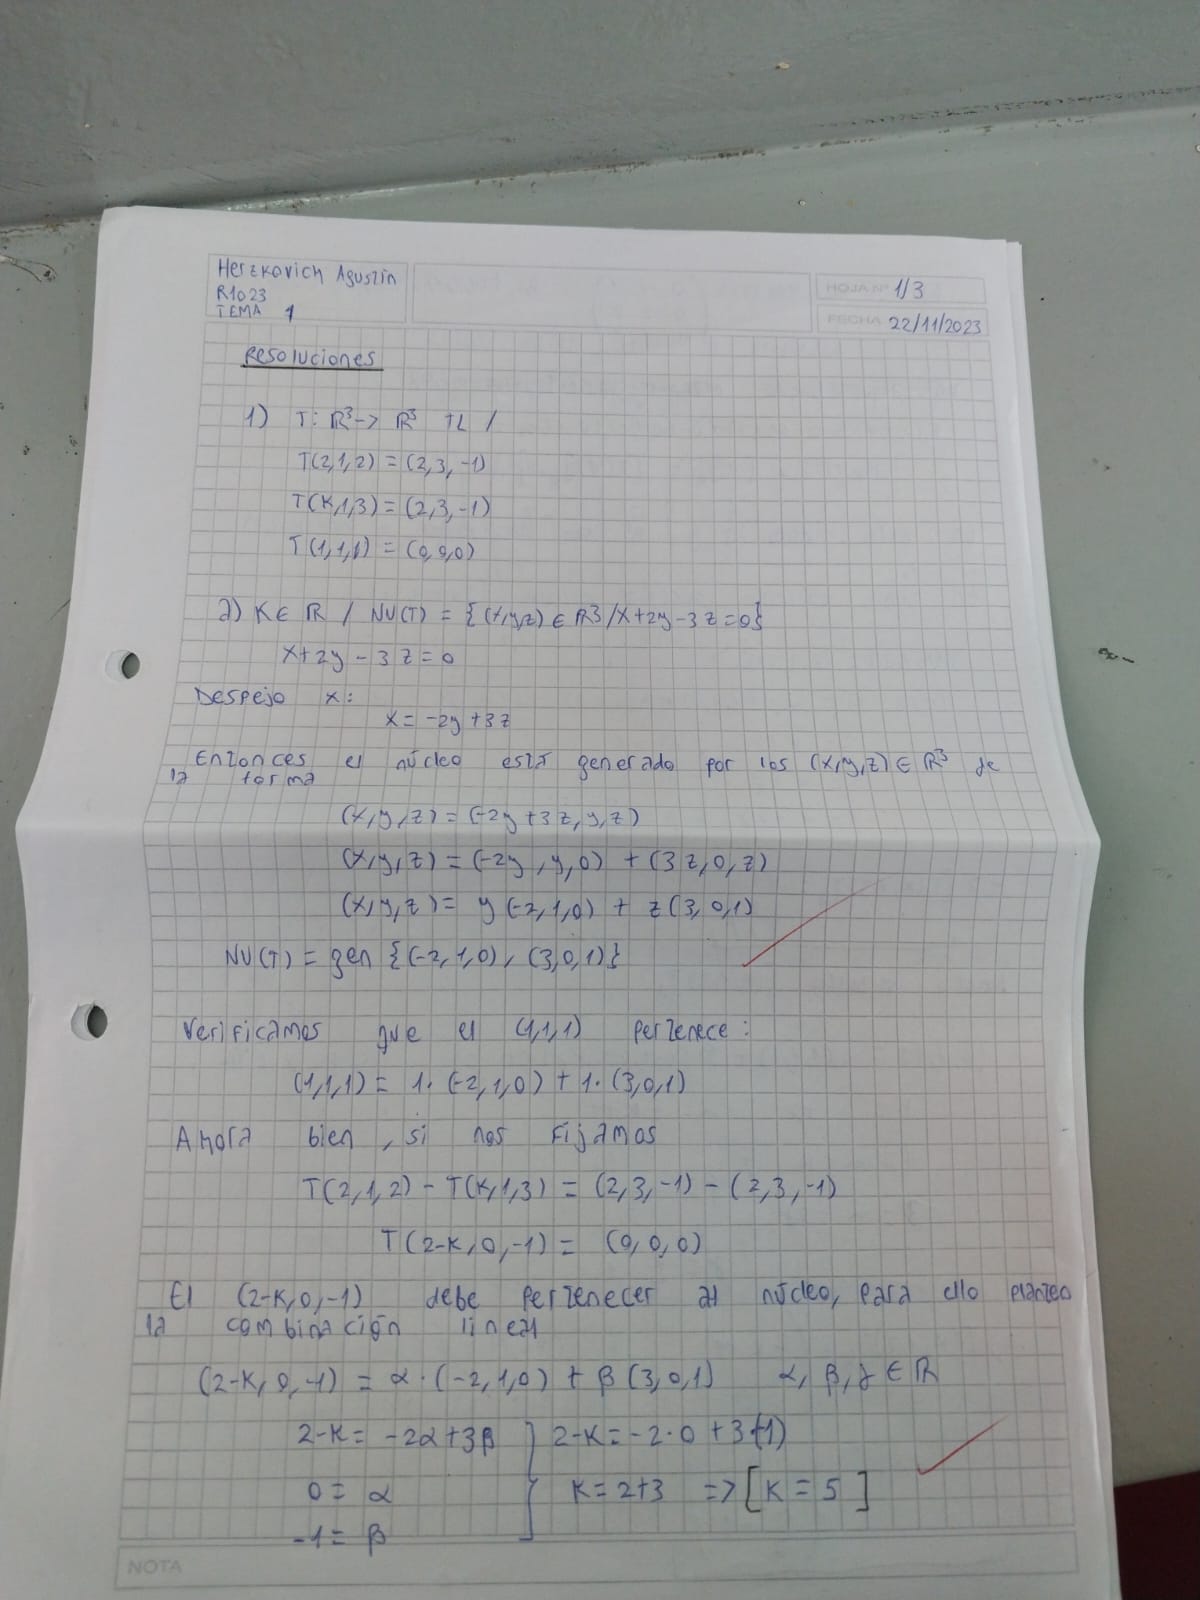 Herzkovich Agustín
R1023
TEMA 1
HOJA Nº 1/3
FECHA 22/11/2023
Resoluciones
1) T: ℝ³ -> ℝ³ TL /
T(2,1,2) = (2,3,-1)
T(K,1,3) = (2,3,-1)
T(1,1,1) = (0,0,0)
a) K ∈ ℝ / NU(T) = {(x,y,z) ∈ ℝ³/x+2y-3z=0}
x+2y-3z=0
Despejo x:
x = -2y+3z
Entonces el núcleo está generado por los (x,y,z) ∈ ℝ³ de
la forma
(x,y,z) = (-2y+3z,y,z)
(x,y,z) = (-2y,y,0) + (3z,0,z)
(x,y,z) = y(-2,1,0) + z(3,0,1)
NU(T) = gen {(-2,1,0), (3,0,1)}
Verificamos que el (1,1,1) pertenece:
(1,1,1) = 1·(-2,1,0) + 1·(3,0,1)
Ahora bien, si nos fijamos
T(2,1,2) - T(K,1,3) = (2,3,-1) - (2,3,-1)
T(2-K,0,-1) = (0,0,0)
El (2-K,0,-1) debe pertenecer al núcleo, para ello planteo
la combinación lineal
(2-K,0,-1) = α·(-2,1,0) + β(3,0,1) α, β, γ ∈ ℝ
2-K = -2α+3β } 2-K = -2·0+3(-1)
0 = α K = 2+3 => [K = 5]
-1 = β
NOTA